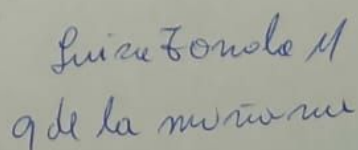 Luisa Tonola M
9 de la mañana